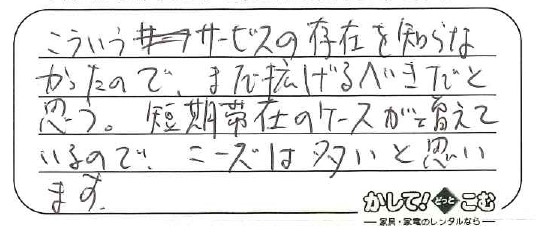 こういうサービスの存在を知らな
かったので、まだ拡げるべきだと
思う。短期帯在のケースが増えて
いるので、ニーズは多いと思い
ます。
かして!どっとこむ
家具・家電のレンタルなら